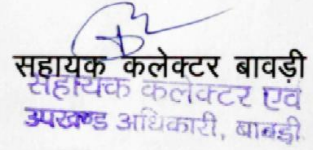 सहायक कलेक्टर बावड़ी
सहायक कलेक्टर एवं
उपखण्ड अधिकारी, बावड़ी